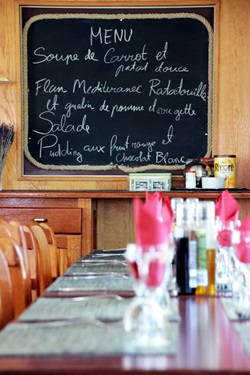 MENU
Soupe de Carrot et
patat douce
Flan Mediteranez Ratatouille
et gratin de pomme d'ougette
Salade
Pudding aux fruit rouge et
Chocolat Blanc